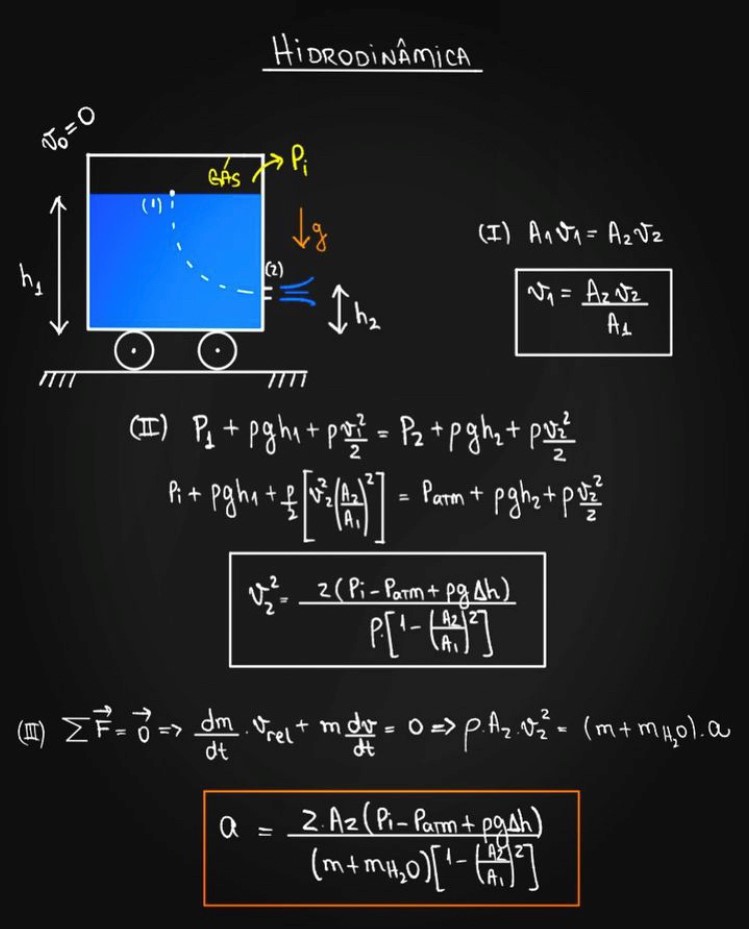 HIDRODINÂMICA
v₀=0
GÁS
Pi
(1)
g
h₁
(2)
h₂
(I) A₁v₁ = A₂v₂
v₁ = A₂v₂/A₁
(II) P₁ + ρgh₁ + ρv₁²/2 = P₂ + ρgh₂ + ρv₂²/2
Pi + ρgh₁ + ρ/2[v₂²(A₂/A₁)²] = Patm + ρgh₂ + ρv₂²/2
v₂² = 2(Pi - Patm + ρgΔh)/ρ.[1 - (A₂/A₁)²]
(III) ∑F⃗ = 0⃗ => dm/dt . vrel + m dv/dt = 0 => ρ.A₂.v₂² = (m + mH₂O).a
a = 2.A₂(Pi - Patm + ρgΔh)/(m + mH₂O)[1 - (A₂/A₁)²]